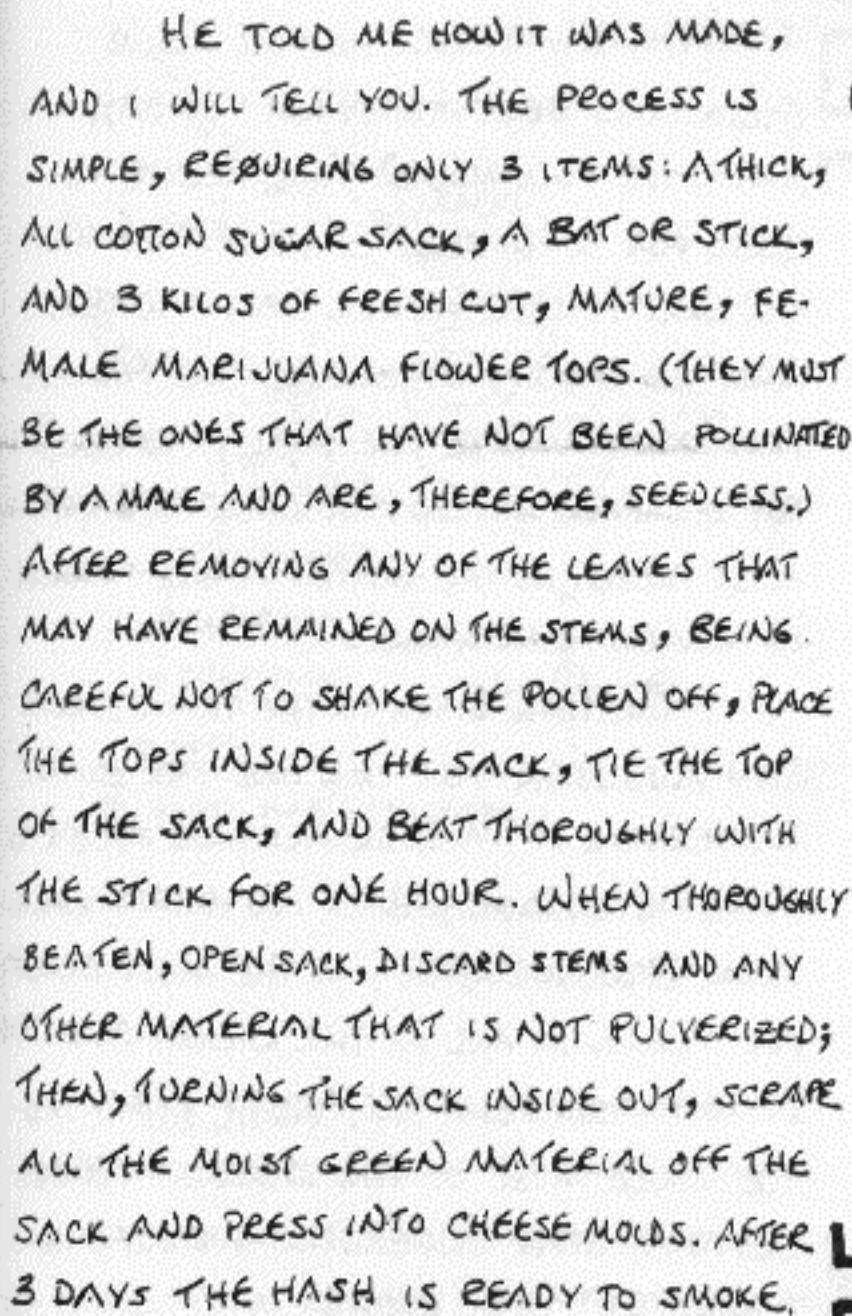 HE TOLD ME HOW IT WAS MADE,
AND I WILL TELL YOU. THE PROCESS IS
SIMPLE, REQUIRING ONLY 3 ITEMS: A THICK,
ALL COTTON SUGAR SACK, A BAT OR STICK,
AND 3 KILOS OF FRESH CUT, MATURE, FE-
MALE MARIJUANA FLOWER TOPS. (THEY MUST
BE THE ONES THAT HAVE NOT BEEN POLLINATED
BY A MALE AND ARE, THEREFORE, SEEDLESS.)
AFTER REMOVING ANY OF THE LEAVES THAT
MAY HAVE REMAINED ON THE STEMS, BEING
CAREFUL NOT TO SHAKE THE POLLEN OFF, PLACE
THE TOPS INSIDE THE SACK, TIE THE TOP
OF THE SACK, AND BEAT THOROUGHLY WITH
THE STICK FOR ONE HOUR. WHEN THOROUGHLY
BEATEN, OPEN SACK, DISCARD STEMS AND ANY
OTHER MATERIAL THAT IS NOT PULVERIZED;
THEN, TURNING THE SACK INSIDE OUT, SCRAPE
ALL THE MOIST GREEN MATERIAL OFF THE
SACK AND PRESS INTO CHEESE MOLDS. AFTER
3 DAYS THE HASH IS READY TO SMOKE.